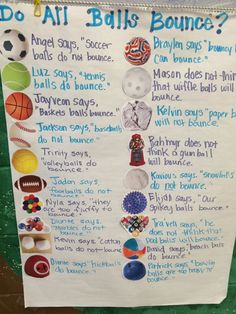 Do All Balls Bounce?
Angel says, "soccer
balls do not bounce.
Luz says, "tennis
balls do bounce.
Jayveon says,
"Baskets balls bounce."
Jackson says, "baseballs
do not bounce.
Trinity says,
Volleyballs do not
bounce.
Jadon says,
do not bounce.
Nyla says, "they
are too fluffy to
bounce.
says,
do not
bounce.
Kevin says "cotton
balls do not bounce
says, "kickballs
do bounce.
Braylen says, "bouncy
can bounce."
Mason does not think
that wiffle balls will
bounce.
Kelvin says "paper
will not bounce.
does not
think a gum ball
will bounce.
says, "snowballs
do not bounce.
Elijah says, "Our
spikey balls bounce.
says, "he
does not think that
balls will bounce.
David says, "beach balls
do bounce.
Patrick says, "bowling
balls are to heavy to
bounce.